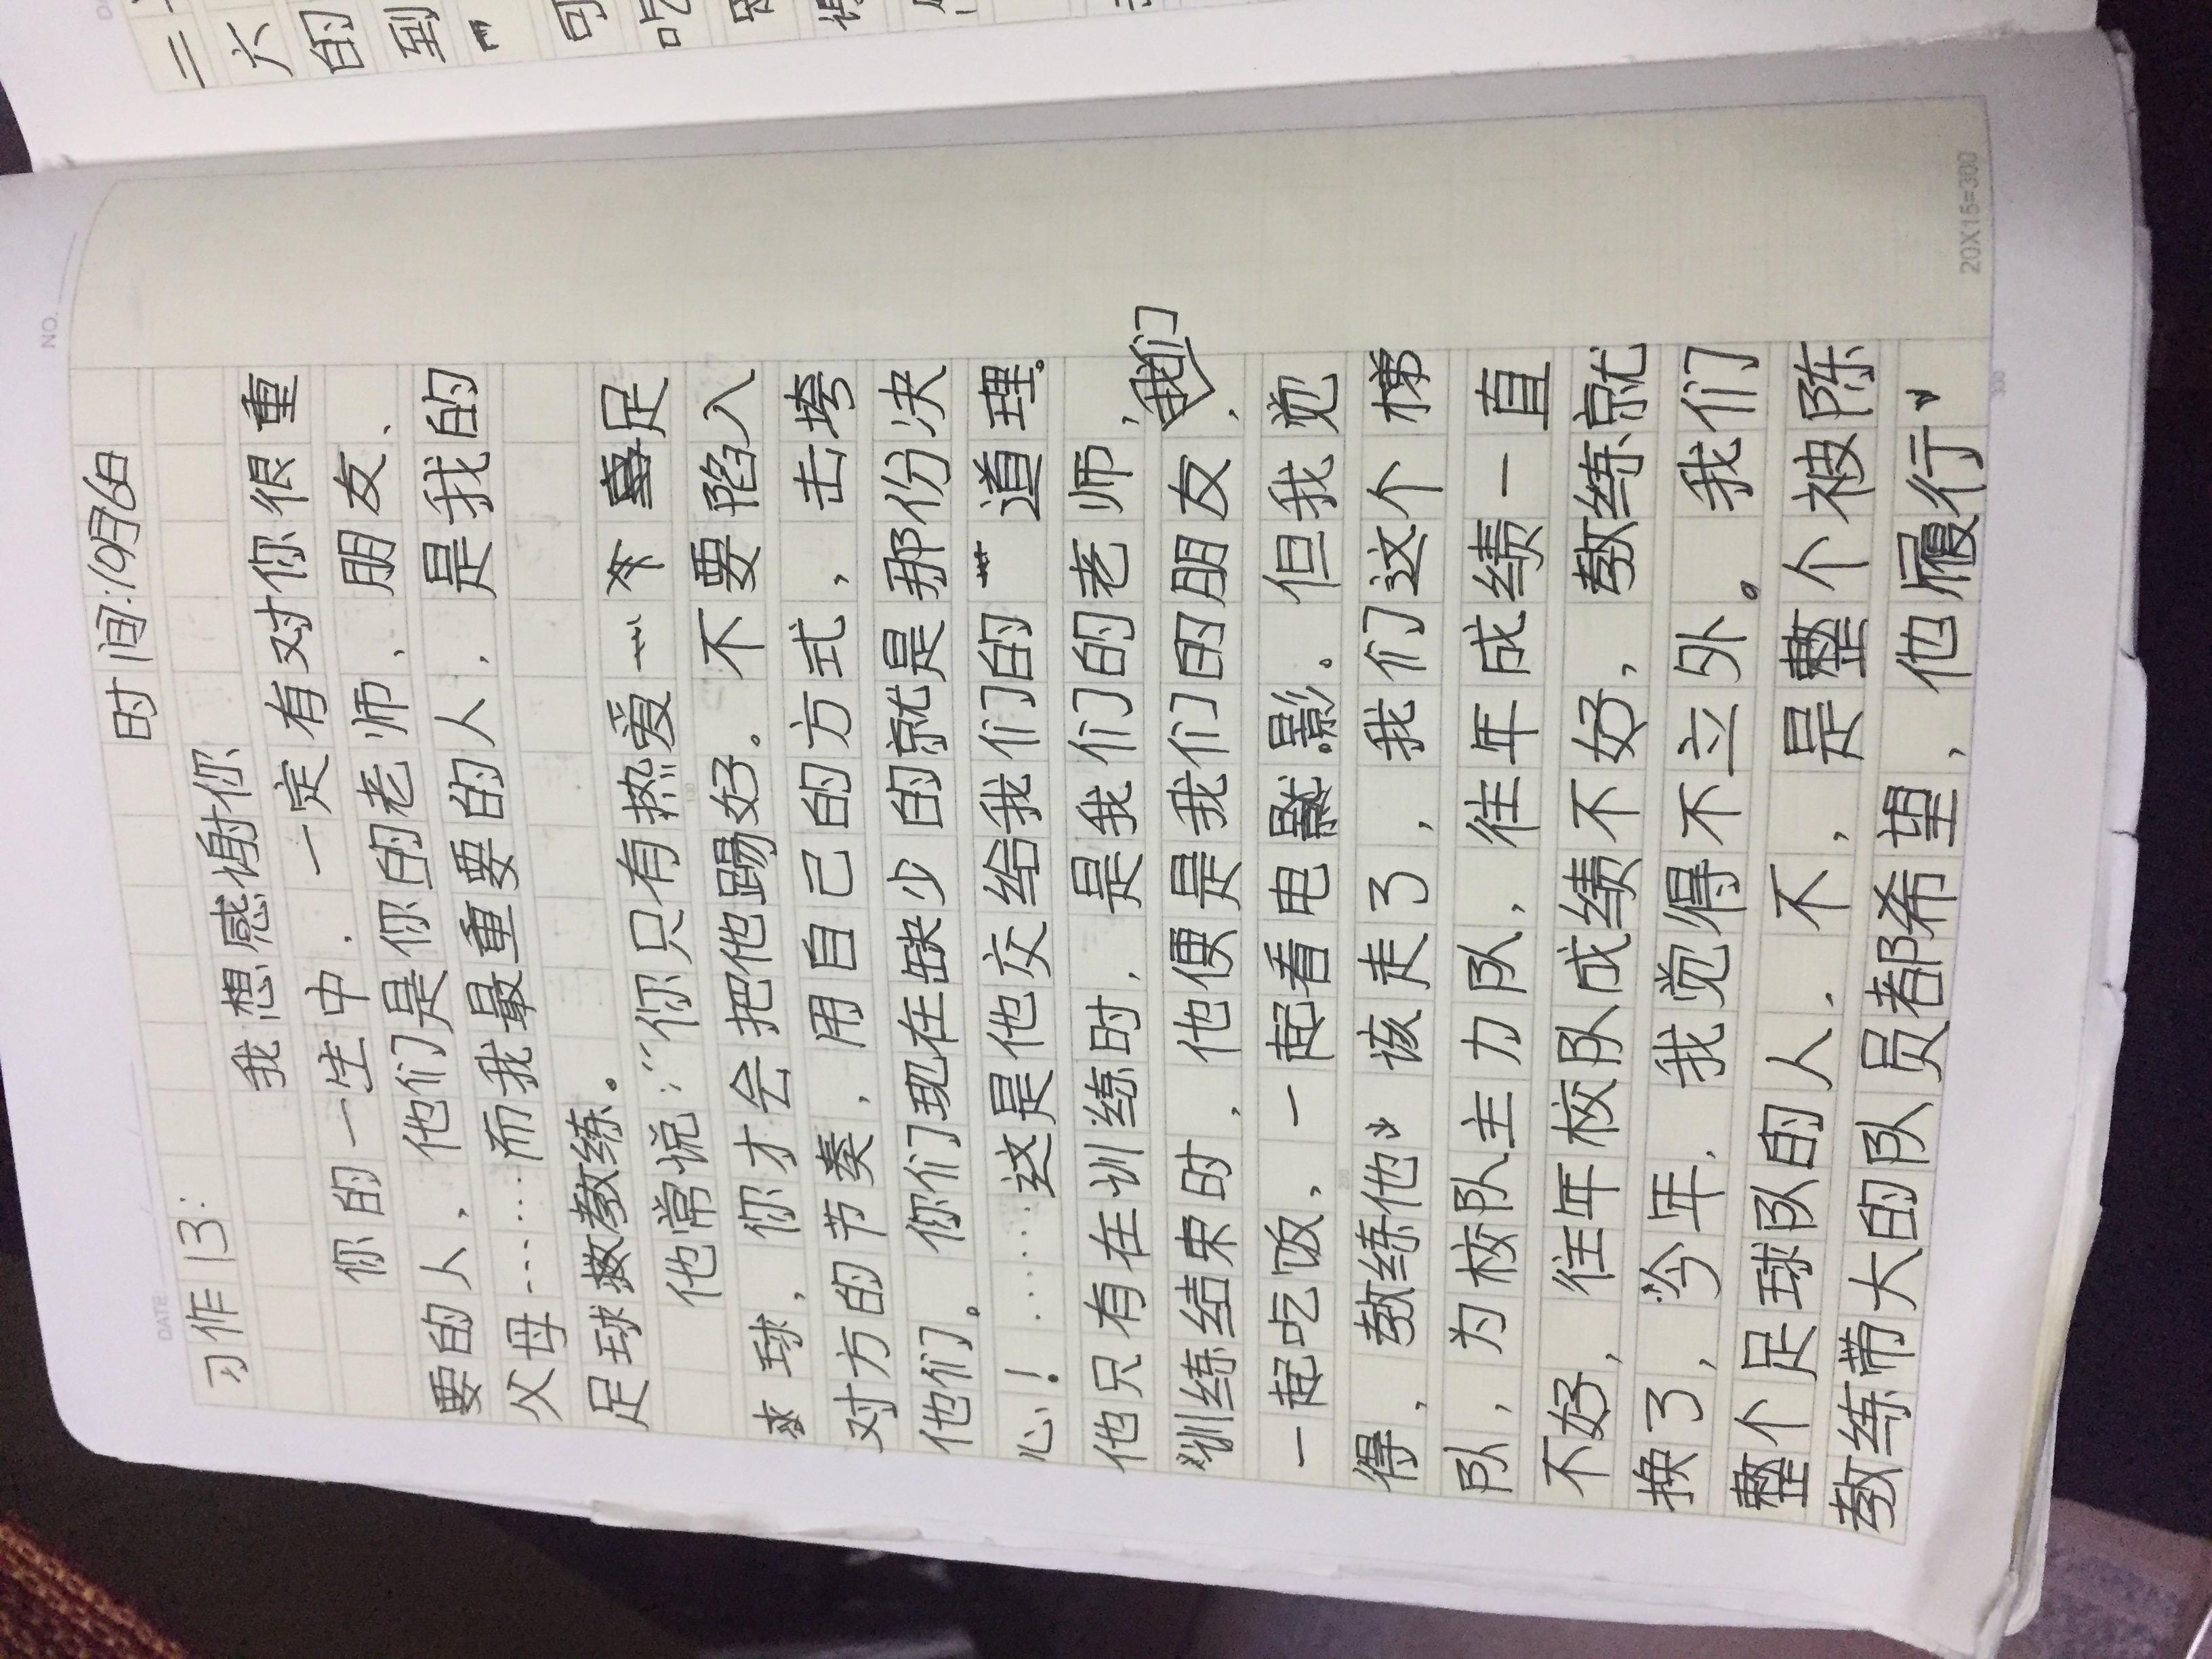 NO.
DATE
时间:19月6日
习作13:
我想感谢你
你的一生中，一定有对你很重
要的人，他们是你的老师、朋友、
父母……而我最重要的人，是我的
足球教练。
他常说:“你只有热爱足
球，你才会把他踢好。不要陷入
对方的节奏，用自己的方式，击垮
他们。你们现在缺少的就是那份决
心！……这是他交给我们的道理。
他只有在训练时，是我们的老师，
训练结束时，他便是我们的朋友，我们
一起吃饭，一起看电影。但我觉
得，教练他该走了，我们这个梯
队，为校队主力队，往年成绩一直
不好，往年校队成绩不好，教练就
换了，今年，我觉得不立外。我们
整个足球队的人，不，是整个被陈
教练带大的队员都希望，他履行
20X15=300
二
六
的
到